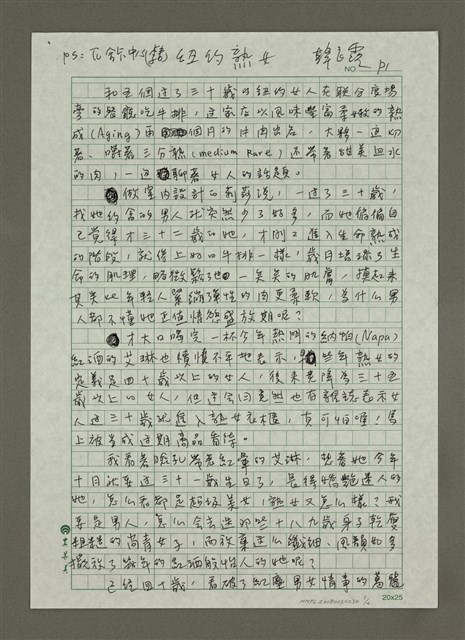 紐約熟女 韓秀 P1
NO.
和五個過了三十歲的紐約女人在聯合廣場
旁的餐館吃牛排,這家店以風味豐富柔嫩的熟
成(Aging)兩個月的牛肉出名,大夥一邊切
著、嚼著三分熟(medium Rare)還帶著鮮美血水
的肉,一邊聊著女人的話題。
做室內設計的莉莎說,一過了三十歲,
找她約會的男人突然少了好多,而她偏偏自
己覺得才三十二歲的她,才剛進入生命熟成
的階段,就像上好的牛排一樣,歲月增添了生
命的肌理,略微鬆弛一點點的肌膚,摸起來
其實比年輕人緊繃彈性的肉更柔軟,為什麼男
人都不懂她正值情慾盛放期呢?
才大口喝完一杯今年熱門的納帕(Napa)
紅酒的艾琳也憤憤不平地表示,早些年熟女的
定義是四十歲以上的女人,後來竟降為三十五
歲以上的女人,但這會兒竟然也有雜誌表示女
人過三十歲就進入熟女衣櫃,真可怕喔!馬
上被當成過期商品看待。
我看著臉孔帶著紅暈的艾琳,想著她今年
十月就要過三十一歲生日了,長得嬌艷迷人的
她,怎麼看都是超級美女,熟女又怎麼樣?我
要是男人,怎麼會去追那些十八九歲身子乾瘦
粗糙的荳青女子,而放棄這麼纖細、風韻如多
擺放了幾年的紅酒般怡人的她呢?
已經四十歲,看破了紅塵男女情事的葛蕾
20x25